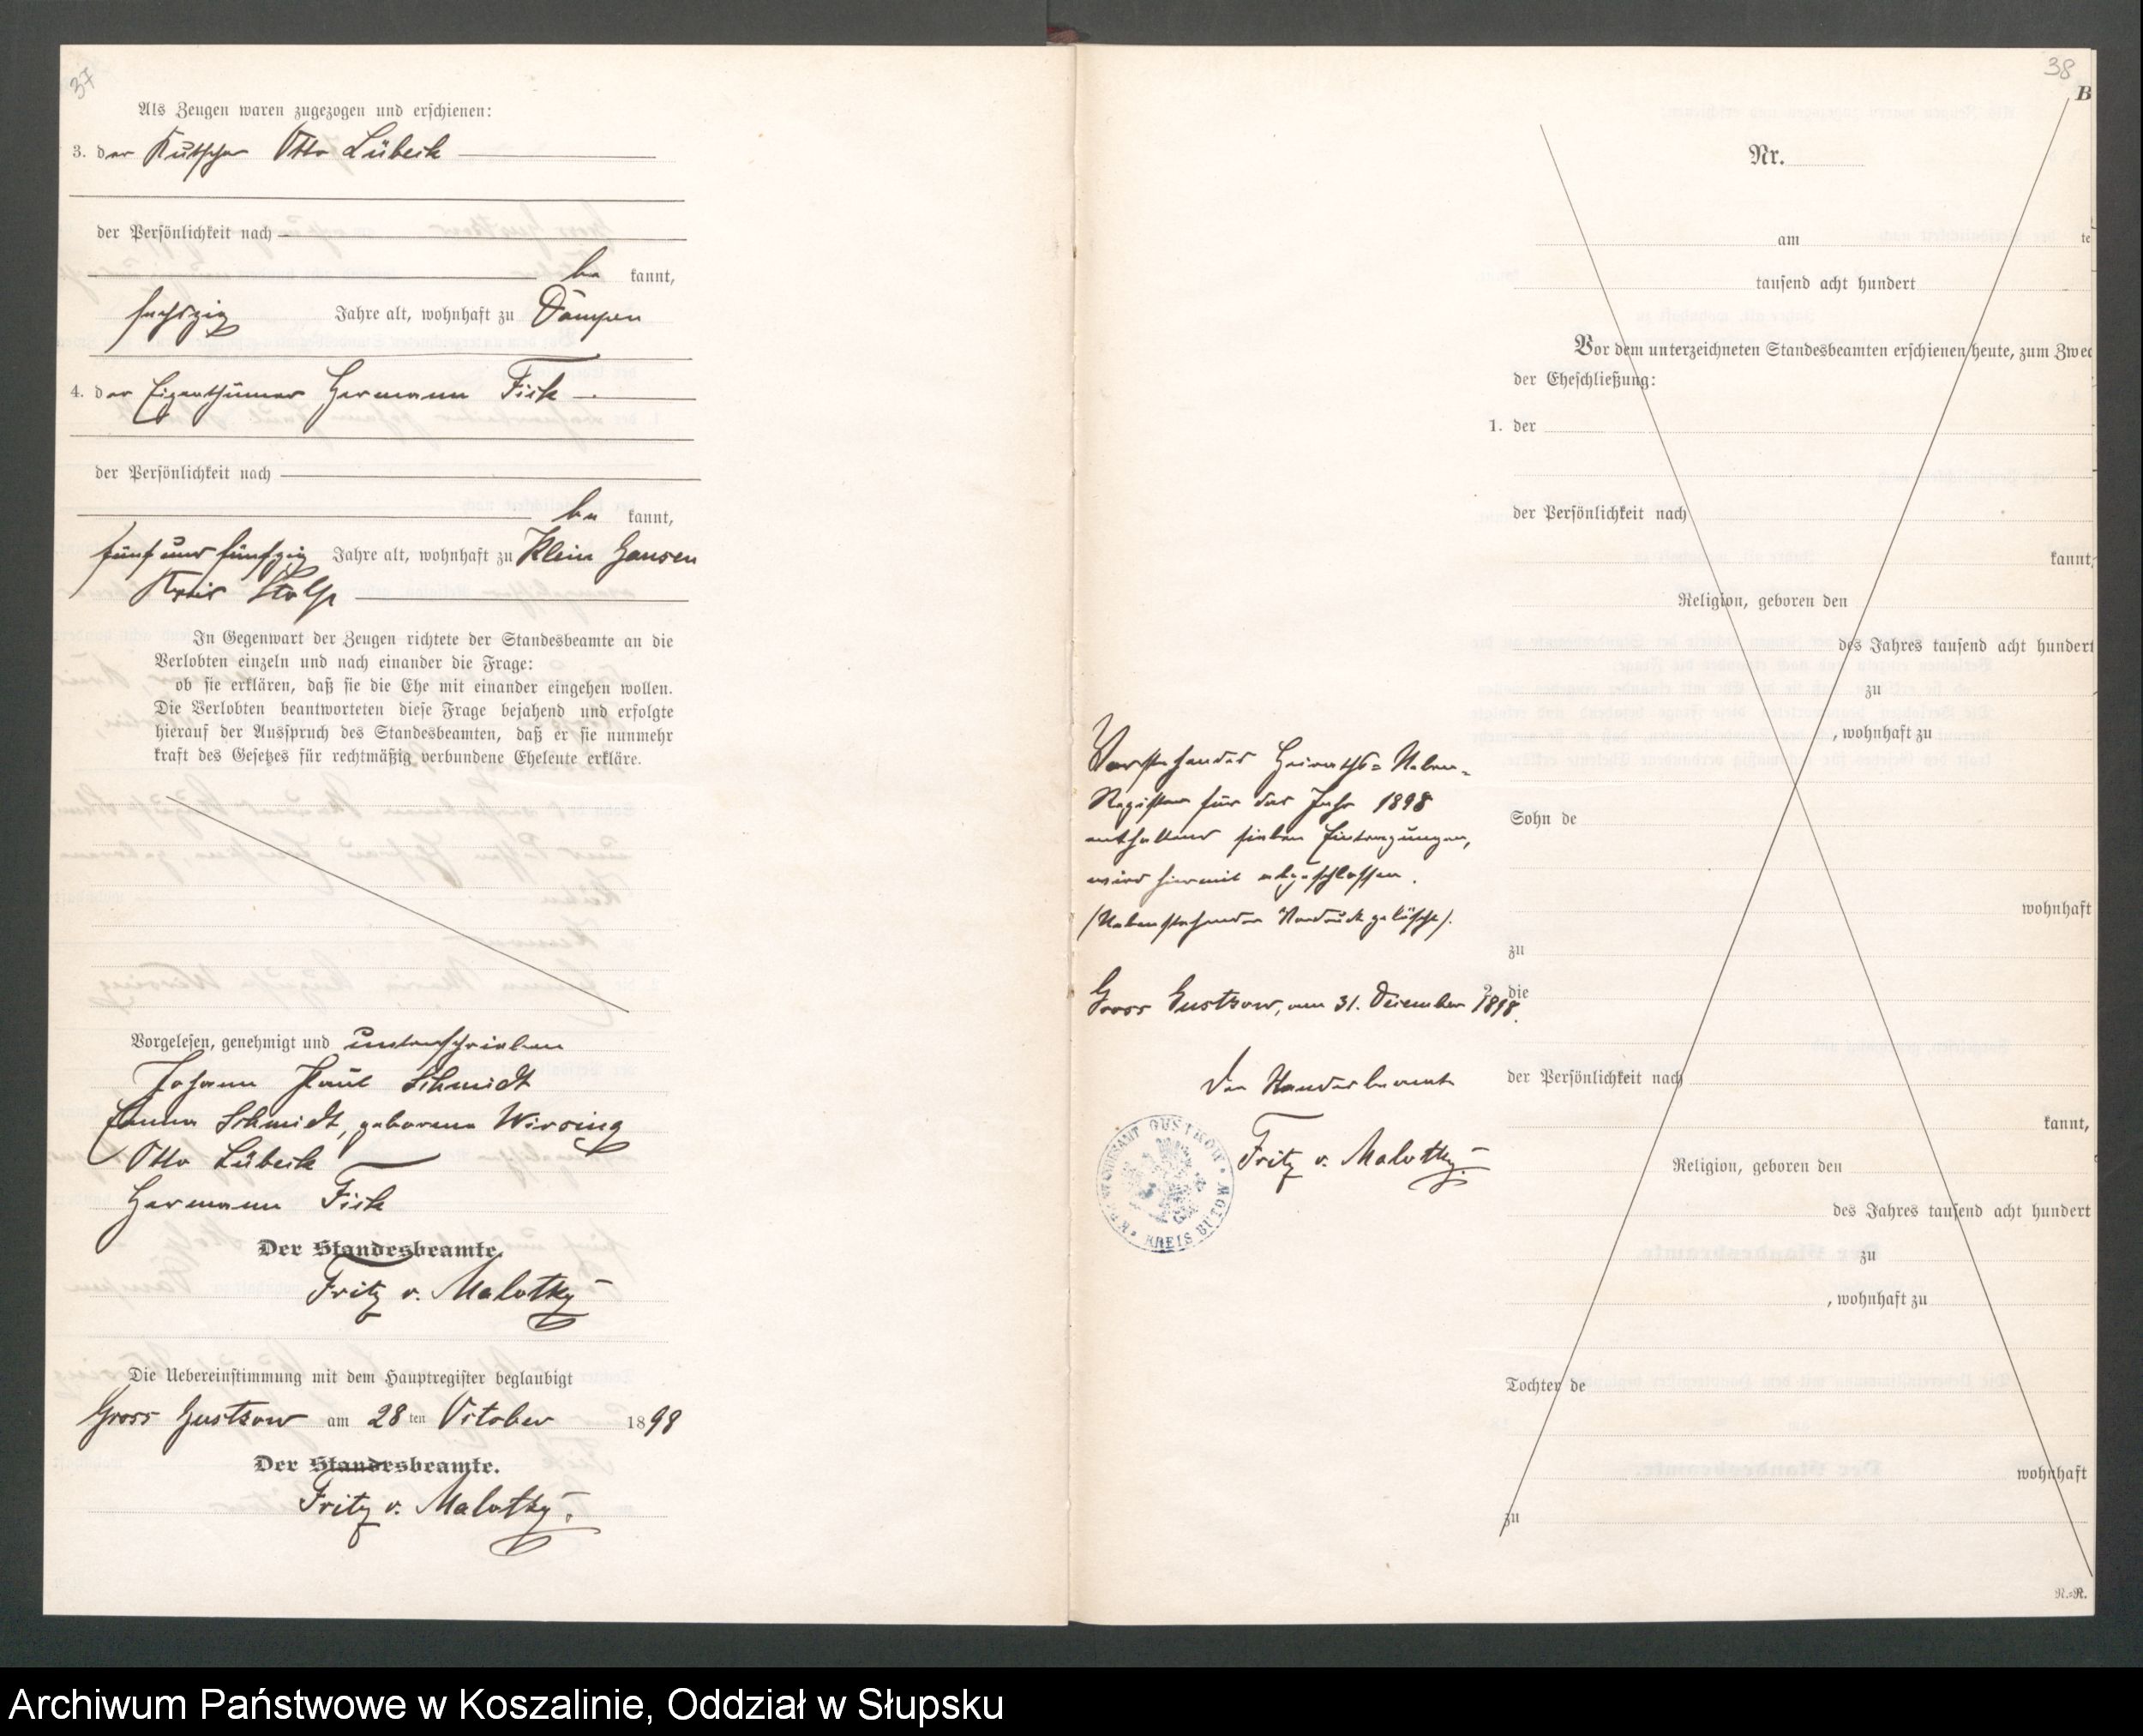 37
Als Zeugen waren zugezogen und erschienen:
3. der Kutscher Otto Lübeck
der Persönlichkeit nach
be kannt,
sechszig Jahre alt, wohnhaft zu Dampen
4. der Eigenthümer Hermann Fick
der Persönlichkeit nach
be kannt,
fünf und fünfzig Jahre alt, wohnhaft zu Klein Gansen
Kreis Stolp
In Gegenwart der Zeugen richtete der Standesbeamte an die
Verlobten einzeln und nach einander die Frage:
ob sie erklären, daß sie die Ehe mit einander eingehen wollen.
Die Verlobten beantworteten diese Frage bejahend und erfolgte
hierauf der Ausspruch des Standesbeamten, daß er sie nunmehr
kraft des Gesetzes für rechtmäßig verbundene Eheleute erkläre.
Vorgelesen, genehmigt und unterschrieben
Johann Paul Schmidt
Emma Schmidt, geborene Wirsing
Otto Lübeck
Hermann Fick
Der Standesbeamte.
Fritz v. Malotky
Die Uebereinstimmung mit dem Hauptregister beglaubigt
Gross Gustkow am 28ten October 1898
Der Standesbeamte.
Fritz v. Malotky.
38
B
Nr.
am te
tausend acht hundert
Vor dem unterzeichneten Standesbeamten erschienen heute, zum Zwec
der Eheschließung:
1. der
der Persönlichkeit nach
kannt,
Religion, geboren den
des Jahres tausend acht hundert
zu
, wohnhaft zu
Sohn de
wohnhaft
zu
2. die
der Persönlichkeit nach
kannt,
Religion, geboren den
des Jahres tausend acht hundert
zu
, wohnhaft zu
Tochter de
wohnhaft
zu
N.=R.
Vorstehendes Heiraths=Neben=
Register für das Jahr 1898
enthaltend sieben Eintragungen,
wird hiermit abgeschlossen.
(Nebenstehender Vordruck gelöscht).
Gross Gustkow, am 31. December 1898.
Der Standesbeamte
Fritz v. Malotky.
STANDESAMT GUSTKOW * KREIS BÜTOW *
Archiwum Państwowe w Koszalinie, Oddział w Słupsku